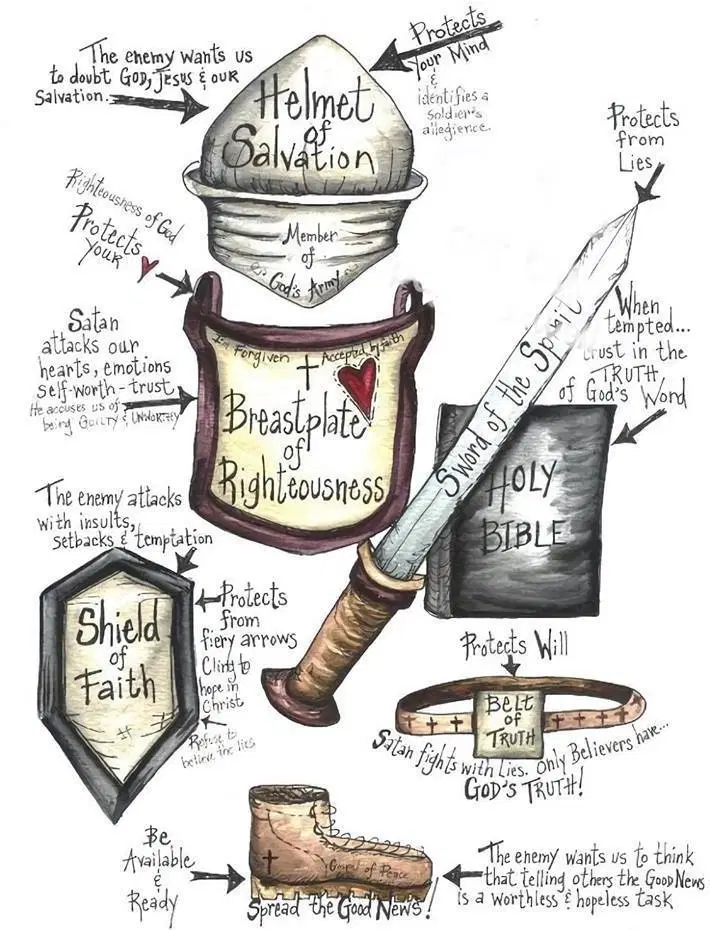 The enemy wants us
to doubt GOD, Jesus & our
Salvation.
Protects
your Mind
&
identifies a
soldier's
allegience.
Helmet
of
Salvation
Member
of
God's Army
Protects
from
Lies
Righteousness of God
Protects
your
Satan
attacks our
hearts, emotions
self-worth-trust
He accuses us of
being GUILTY & UNWORTHY
I'm Forgiven
Accepted by faith
Breastplate
of
Righteousness
Sword of the Spirit
When
tempted...
trust in the
TRUTH
of God's Word
HOLY
BIBLE
The enemy attacks
with insults,
setbacks & temptation
Shield
of
Faith
Protects
from
fiery arrows
Cling to
hope in
Christ
Refuse to
believe the lies
Protects Will
BELT
of
TRUTH
Satan fights with Lies. Only Believers have...
GOD'S TRUTH!
Be
Available
&
Ready
Gospel of Peace
Spread the Good News!
The enemy wants us to think
that telling others the Good News
is a worthless & hopeless task